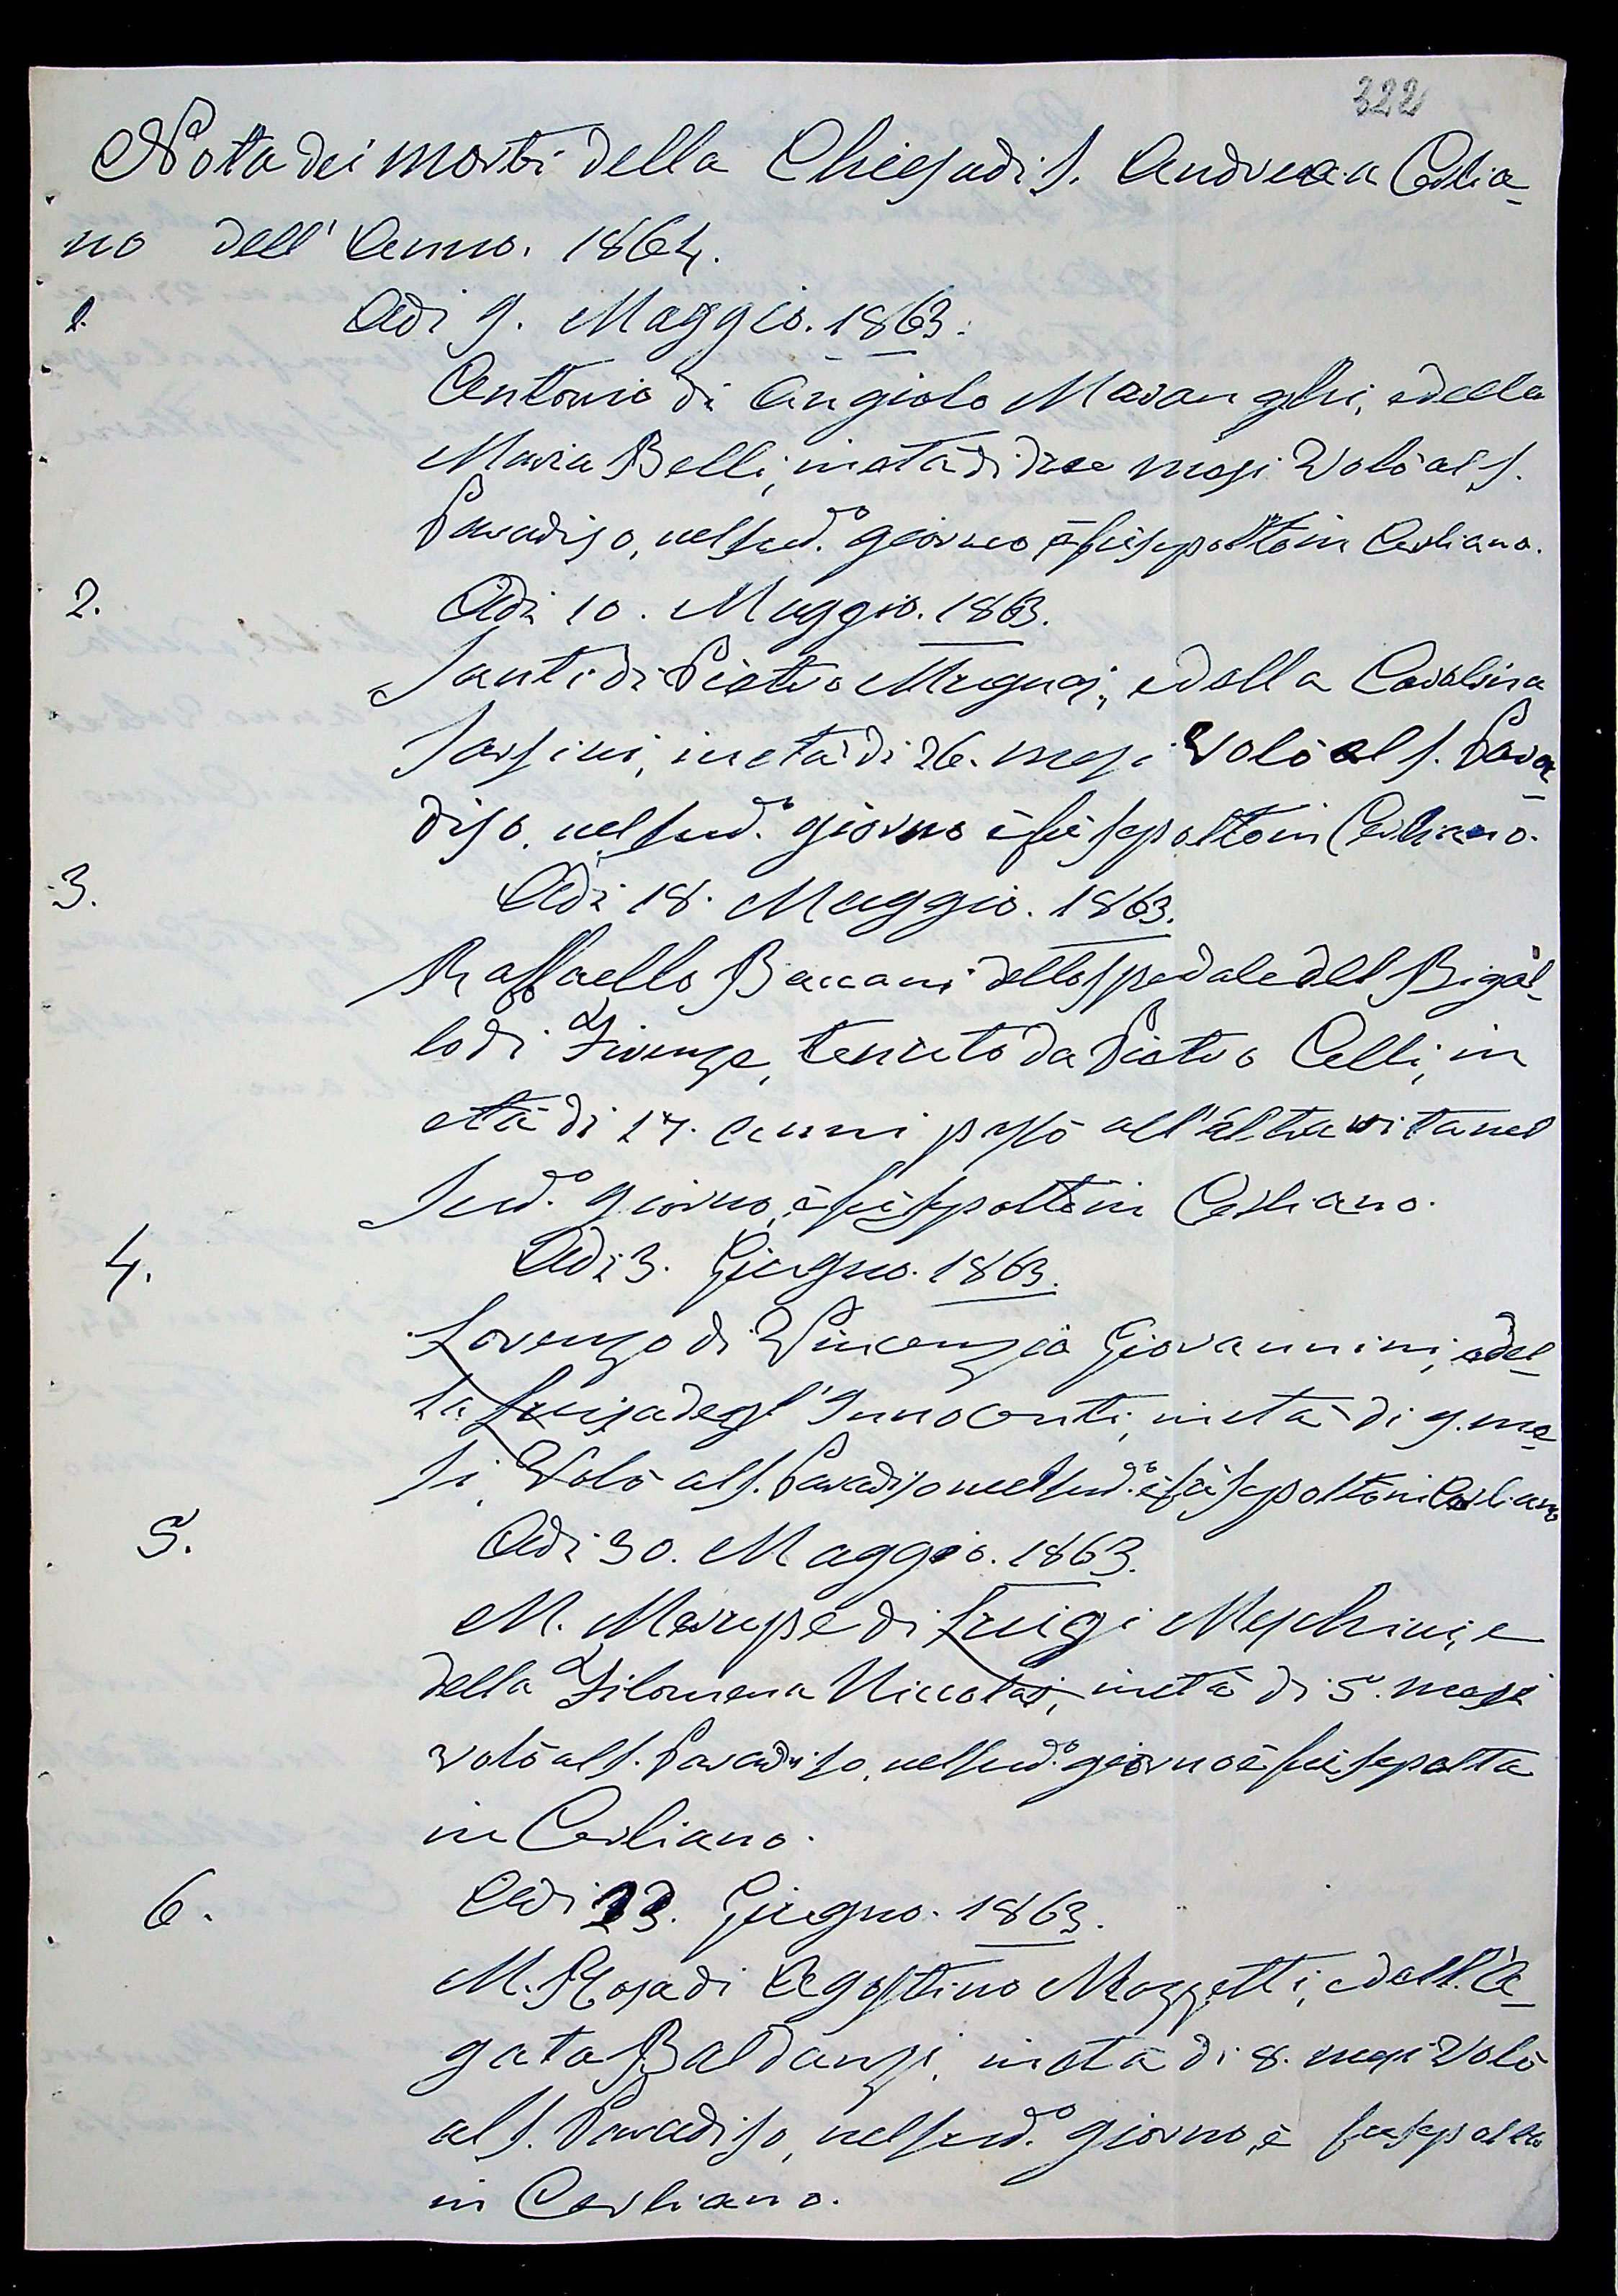 322
Nota dei morti della Chiesa di S. Andrea a Cerlia-
no dell' Anno. 1864.
1. Adi 9. Maggio. 1863.
Antonio di Angiolo Maranghi, e della
Maria Belli, in età di due mesi Volò al S.
Paradiso, nel sud.º giorno è fù sepolto in Cerliano.
2. Adi 10. Maggio. 1863.
Santi di Pietro Mugnaj, e dalla Carolina
Sarsini, in età di 26. mesi Volò al S. Para-
diso, nel sud.º giorno è fù sepolto in Cerliano.
3. Adi 18. Maggio. 1863.
Raffaello Baccani dello spedale del Bigal-
lo di Firenze, tenuto da Pietro Celli, in
età di 17. anni passò all'altra vita nel
sud.º giorno, è fù sepolto in Cerliano.
4. Adi 3. Giugno. 1863.
Lorenzo di Vincenzio Giovannini, e del-
la Luisa degl' Innocenti, in età di 9. me-
si, Volò al S. Paradiso nel sud.º è fù sepolto in Cerliano
5. Adi 30. Maggio. 1863.
M. di Luigi Meschini, e
della Filomena Niccolai, in età di 5. mesi
volò al S. Paradiso, nel sud.º giorno è fù sepolta
in Cerliano.
6. Adi 23. Giugno. 1863.
M. Rosa di Agostino Mazzetti, e dall' A-
gata Baldanzi, in età di 8. mesi Volò
al S. Paradiso, nel sud.º giorno, è fù sepolta
in Cerliano.